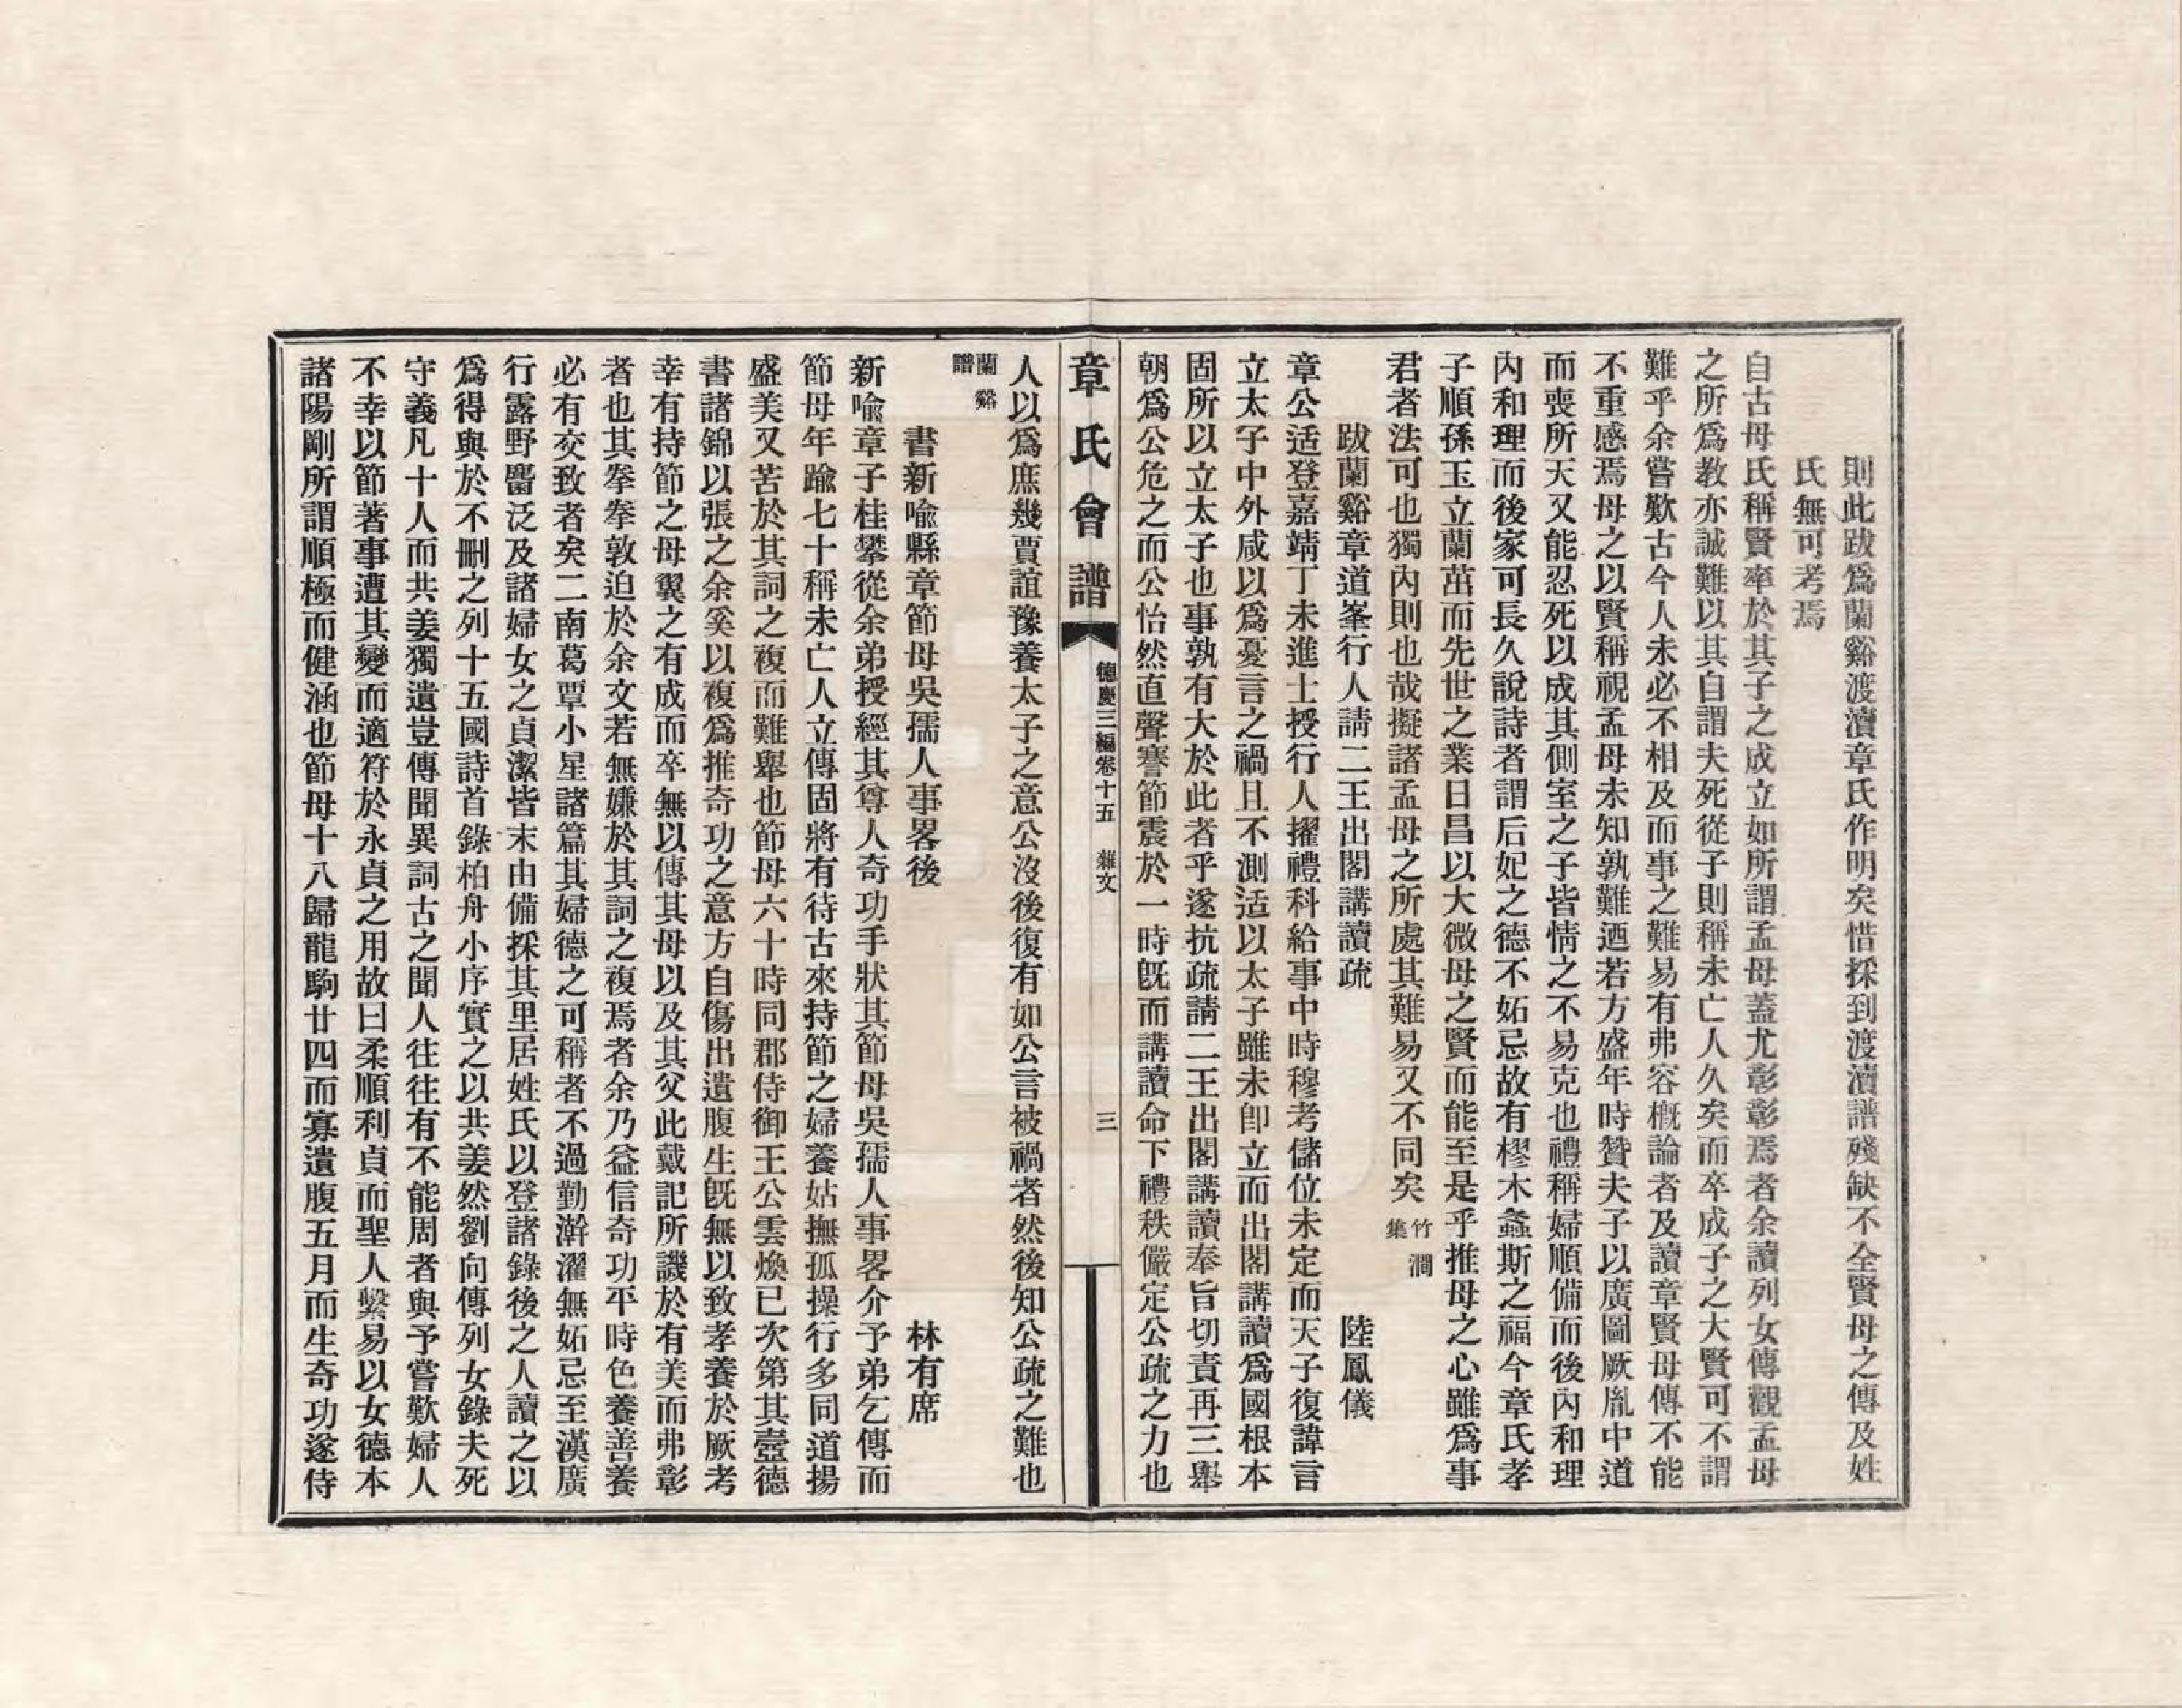 則此跋爲蘭谿渡瀆章氏作明矣惜採到渡瀆譜殘缺不全賢母之傳及姓
氏無可考焉
自古母氏稱賢率於其子之成立如所謂孟母蓋尤彰彰焉者余讀列女傳觀孟母
之所爲教亦誠難以其自謂夫死從子則稱未亡人久矣而卒成子之大賢可不謂
難乎余嘗歎古今人未必不相及而事之難易有弗容槪論者及讀章賢母傳不能
不重感焉母之以賢稱視孟母未知孰難迺若方盛年時贊夫子以廣圖厥胤中道
而喪所天又能忍死以成其側室之子皆情之不易克也禮稱婦順備而後內和理
內和理而後家可長久說詩者謂后妃之德不妬忌故有樛木螽斯之福今章氏孝
子順孫玉立蘭茁而先世之業日昌以大微母之賢而能至是乎推母之心雖爲事
君者法可也獨內則也哉擬諸孟母之所處其難易又不同矣竹澗集
跋蘭谿章道峯行人請二王出閣講讀疏 陸鳳儀
章公适登嘉靖丁未進士授行人擢禮科給事中時穆考儲位未定而天子復諱言
立太子中外咸以爲憂言之禍且不測适以太子雖未卽立而出閣講讀爲國根本
固所以立太子也事孰有大於此者乎遂抗疏請二王出閣講讀奉旨切責再三舉
朝爲公危之而公怡然直聲謇節震於一時旣而講讀命下禮秩儼定公疏之力也
章氏會譜 德慶三編卷十五 雜文 三
人以爲庶幾賈誼豫養太子之意公沒後復有如公言被禍者然後知公疏之難也
蘭谿譜
書新喻縣章節母吳孺人事畧後 林有席
新喻章子桂攀從余弟授經其尊人奇功手狀其節母吳孺人事畧介予弟乞傳而
節母年踰七十稱未亡人立傳固將有待古來持節之婦養姑撫孤操行多同道揚
盛美又苦於其詞之複而難舉也節母六十時同郡侍御王公雲煥已次第其壼德
書諸錦以張之余奚以複爲推奇功之意方自傷出遺腹生旣無以致孝養於厥考
幸有持節之母翼之有成而卒無以傳其母以及其父此戴記所譏於有美而弗彰
者也其拳拳敦迫於余文若無嫌於其詞之複焉者余乃益信奇功平時色養善養
必有交致者矣二南葛覃小星諸篇其婦德之可稱者不過勤澣濯無妬忌至漢廣
行露野麕泛及諸婦女之貞潔皆末由備採其里居姓氏以登諸錄後之人讀之以
爲得與於不刪之列十五國詩首錄柏舟小序實之以共姜然劉向傳列女錄夫死
守義凡十人而共姜獨遺豈傳聞異詞古之聞人往往有不能周者與予嘗歎婦人
不幸以節著事遭其變而適符於永貞之用故曰柔順利貞而聖人繫易以女德本
諸陽剛所謂順極而健涵也節母十八歸龍駒廿四而寡遺腹五月而生奇功遂侍